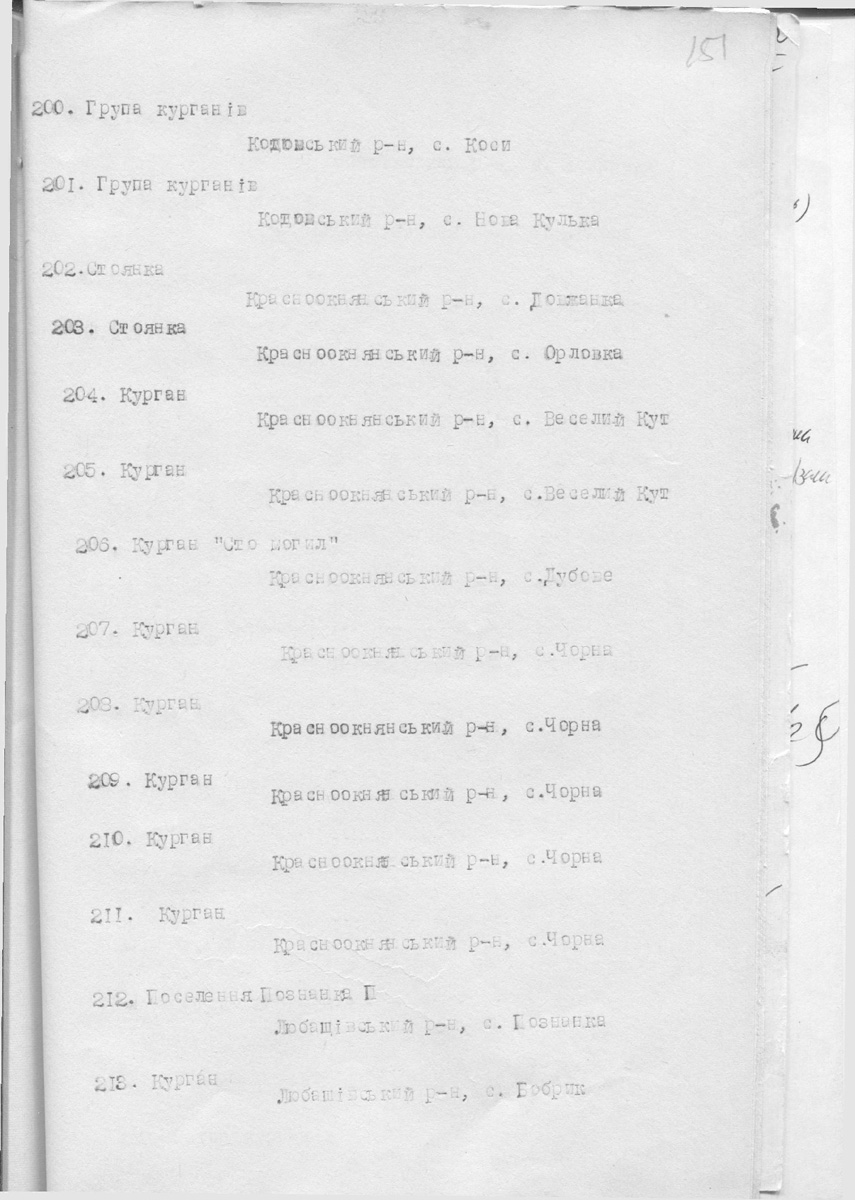 151
200. Група курганів
Кодимський р-н, с. Коси
201. Група курганів
Кодимський р-н, с. Нова Кулька
202.Стоянка
Красноокнянський р-н, с. Довжанка
203. Стоянка
Красноокнянський р-н, с. Орловка
204. Курган
Красноокнянський р-н, с. Веселий Кут
205. Курган
Красноокнянський р-н, с.Веселий Кут
206. Курган "Сто могил"
Красноокнянський р-н, с.Дубове
207. Курган
Красноокнянський р-н, с.Чорна
208. Курган
Красноокнянський р-н, с.Чорна
209. Курган
Красноокнянський р-н, с.Чорна
210. Курган
Красноокнянський р-н, с.Чорна
211. Курган
Красноокнянський р-н, с.Чорна
212. Поселення Познанка П
Любащівський р-н, с. Познанка
213. Курган
Любашівський р-н, с. Бобрик